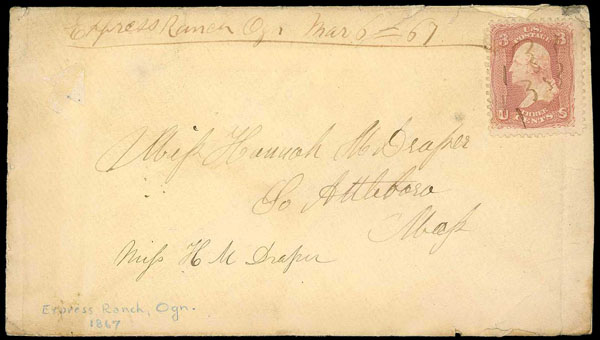 Express Ranch Ogn Mar 5 = 67
3 U.S. POSTAGE 3
U THREE CENTS S
Miss Hannah M Draper
So Attleboro
Mass
Miss H M Draper
Express Ranch, Ogn.
1867